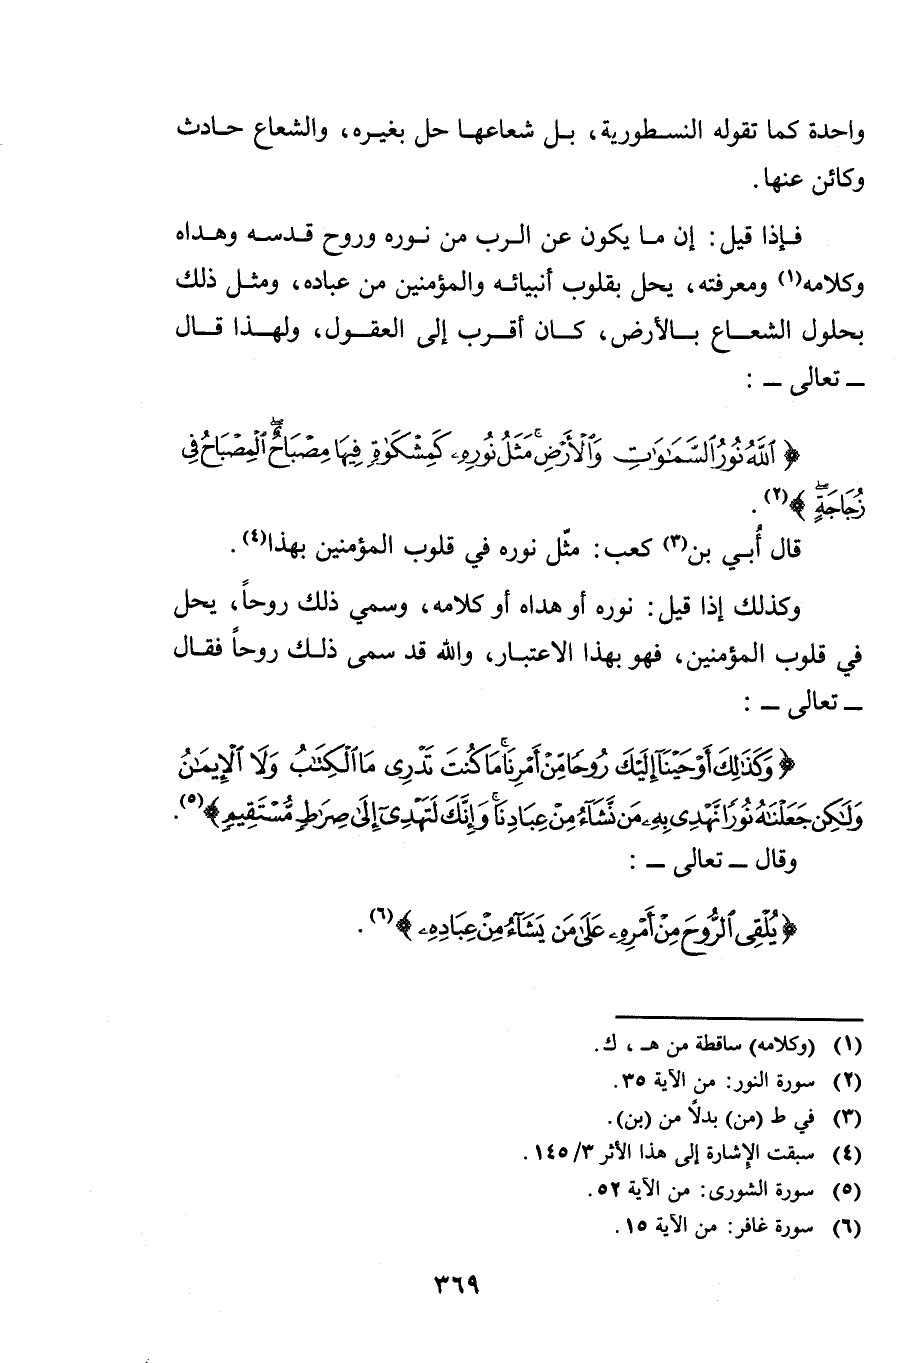 واحدة كما تقوله النسطورية، بل شعاعها حل بغيره، والشعاع حادث
وكائن عنها.
فإذا قيل: إن ما يكون عن الرب من نوره وروح قدسه وهداه
وكلامه(١) ومعرفته، يحل بقلوب أنبيائه والمؤمنين من عباده، ومثل ذلك
بحلول الشعاع بالأرض، كان أقرب إلى العقول، ولهذا قال
ـ تعالى ـ :
﴿ ٱللَّهُ نُورُ ٱلسَّمَٰوَٰتِ وَٱلْأَرْضِۚ مَثَلُ نُورِهِۦ كَمِشْكَوٰةٍ فِيهَا مِصْبَاحٌۖ ٱلْمِصْبَاحُ فِى
زُجَاجَةٍۖ ﴾(٢).
قال أُبي بن(٣) كعب: مثّل نوره في قلوب المؤمنين بهذا(٤).
وكذلك إذا قيل: نوره أو هداه أو كلامه، وسمي ذلك روحاً، يحل
في قلوب المؤمنين، فهو بهذا الاعتبار، والله قد سمى ذلك روحاً فقال
ـ تعالى ـ :
﴿ وَكَذَٰلِكَ أَوْحَيْنَآ إِلَيْكَ رُوحًا مِّنْ أَمْرِنَاۚ مَا كُنتَ تَدْرِى مَا ٱلْكِتَٰبُ وَلَا ٱلْإِيمَٰنُ
وَلَٰكِن جَعَلْنَٰهُ نُورًا نَّهْدِى بِهِۦ مَن نَّشَآءُ مِنْ عِبَادِنَاۚ وَإِنَّكَ لَتَهْدِىٓ إِلَىٰ صِرَٰطٍ مُّسْتَقِيمٍ ﴾(٥).
وقال ـ تعالى ـ :
﴿ يُلْقِى ٱلرُّوحَ مِنْ أَمْرِهِۦ عَلَىٰ مَن يَشَآءُ مِنْ عِبَادِهِۦ ﴾(٦).
(١) (وكلامه) ساقطة من هـ ، ك.
(٢) سورة النور: من الآية ٣٥.
(٣) في ط (من) بدلاً من (بن).
(٤) سبقت الإشارة إلى هذا الأثر ١٤٥/٣.
(٥) سورة الشورى: من الآية ٥٢.
(٦) سورة غافر: من الآية ١٥.
٣٦٩